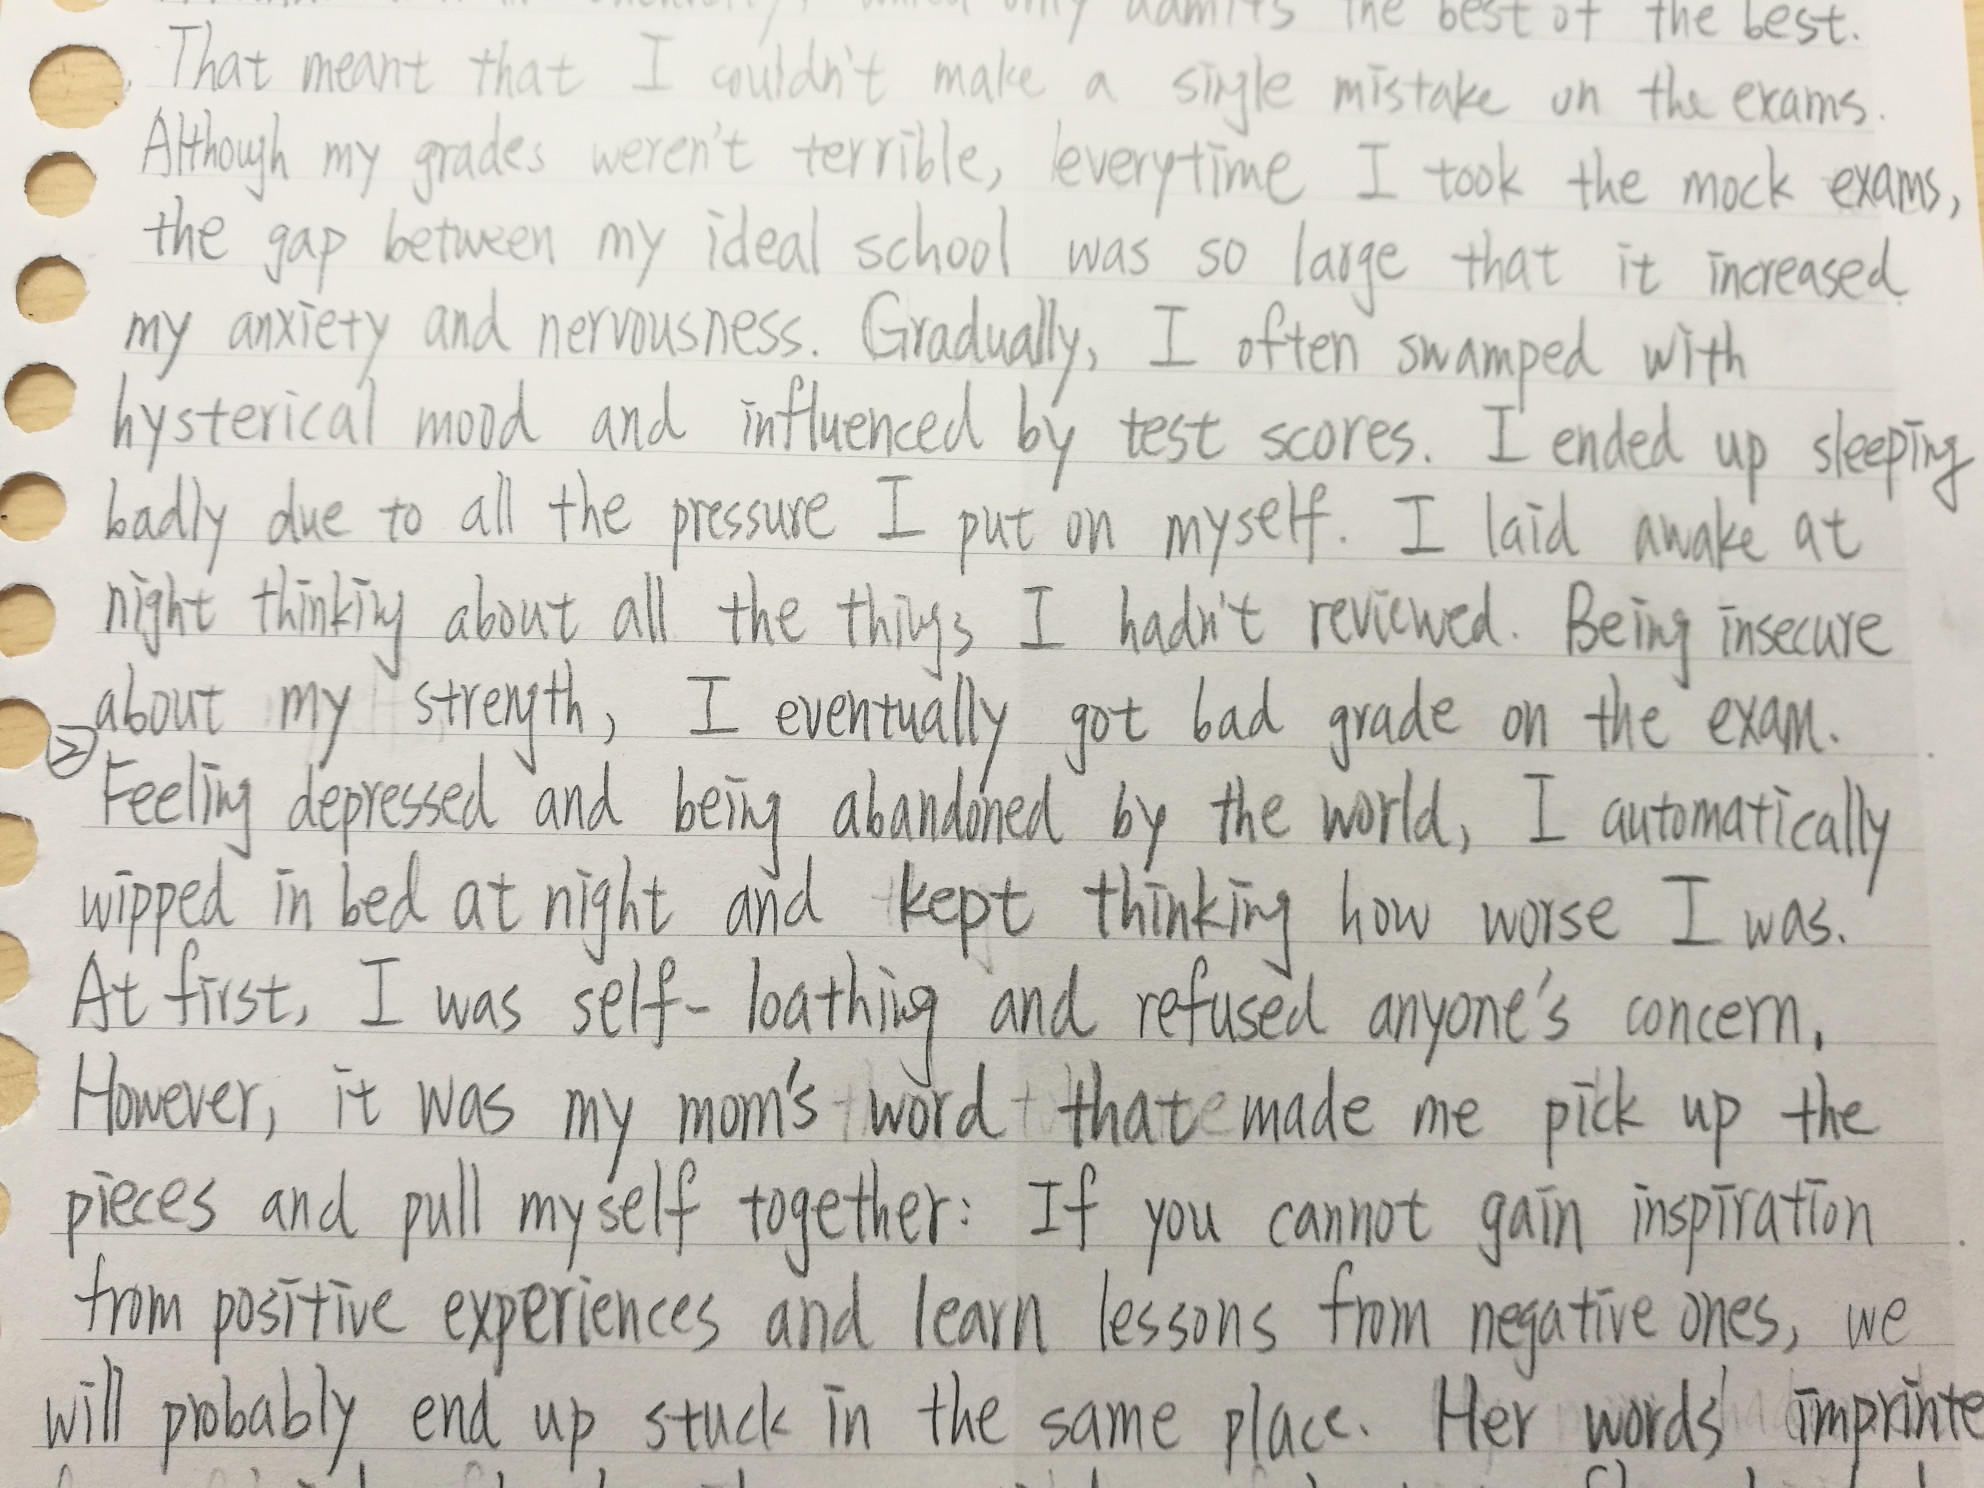 only admits the best of the best.
That meant that I couldn't make a single mistake on the exams.
Although my grades weren't terrible, everytime I took the mock exams,
the gap between my ideal school was so large that it increased
my anxiety and nervousness. Gradually, I often swamped with
hysterical mood and influenced by test scores. I ended up sleeping
badly due to all the pressure I put on myself. I laid awake at
night thinking about all the things I hadn't reviewed. Being insecure
about my strength, I eventually got bad grade on the exam.
② Feeling depressed and being abandoned by the world, I automatically
wipped in bed at night and kept thinking how worse I was.
At first, I was self-loathing and refused anyone's concern.
However, it was my mom's word that made me pick up the
pieces and pull myself together: If you cannot gain inspiration
from positive experiences and learn lessons from negative ones, we
will probably end up stuck in the same place. Her words imprinte